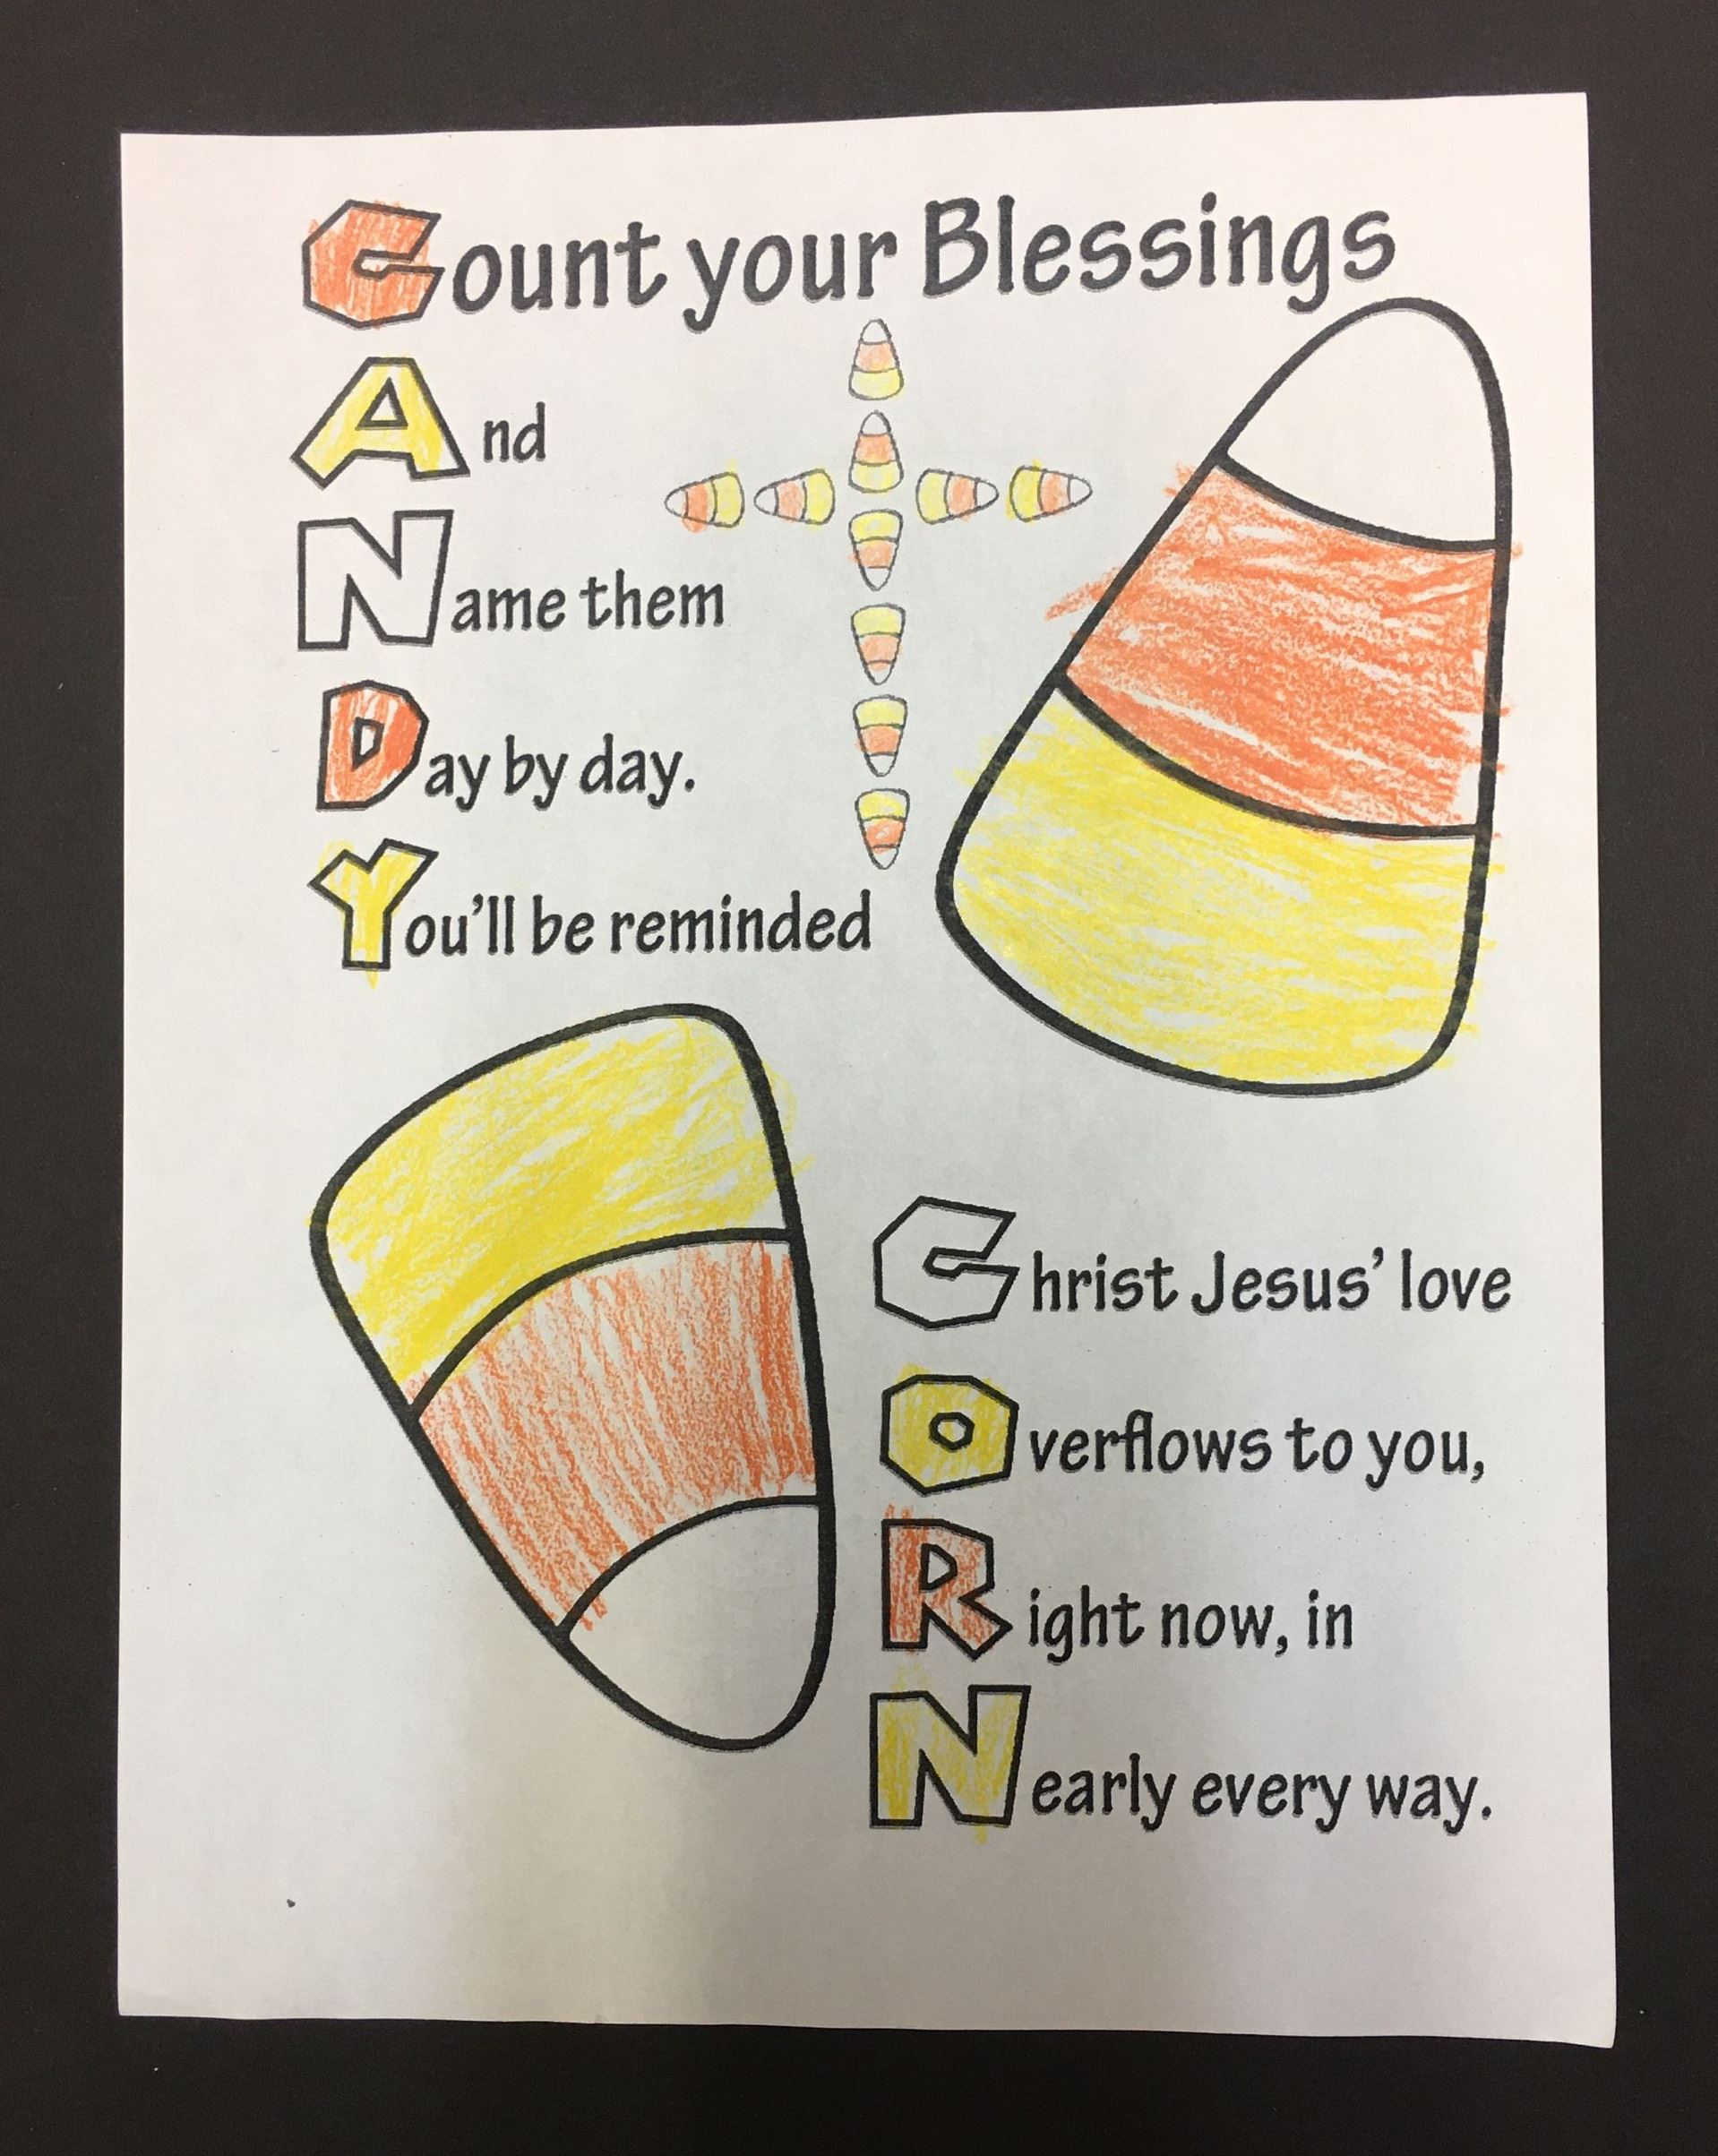 Count your Blessings
And
Name them
Day by day.
You'll be reminded
Christ Jesus' love
Overflows to you,
Right now, in
Nearly every way.